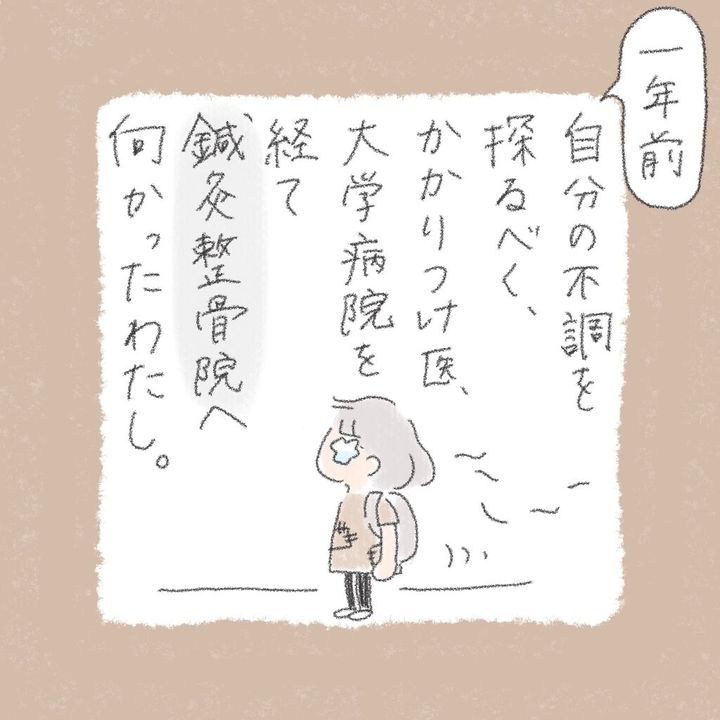 一年前
自分の不調を
探るべく、
かかりつけ医、
大学病院を
経て
鍼灸整骨院へ
向かったわたし。